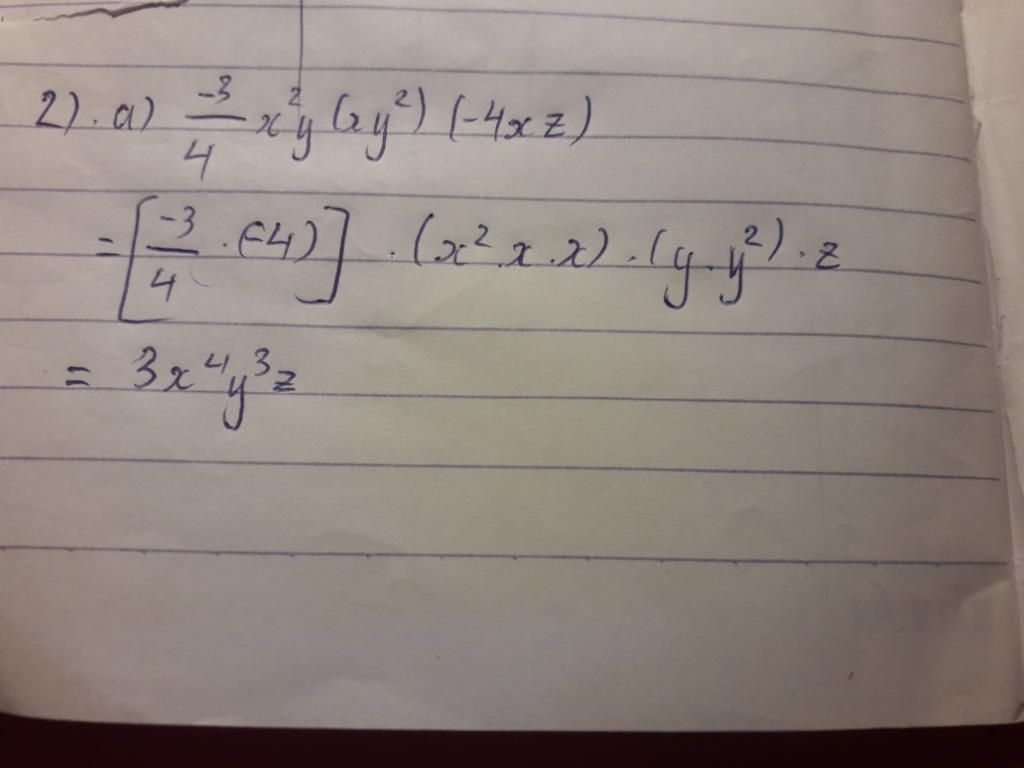 2). a) -3/4 x²y (xy²) (-4xz)
= [-3/4 . (-4)] . (x².x.x) . (y.y²) . z
= 3x⁴y³z